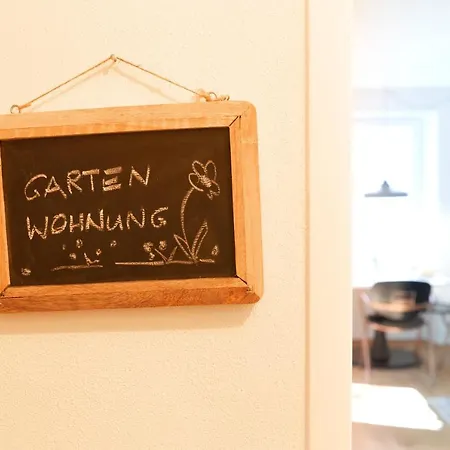 GARTEN
WOHNUNG